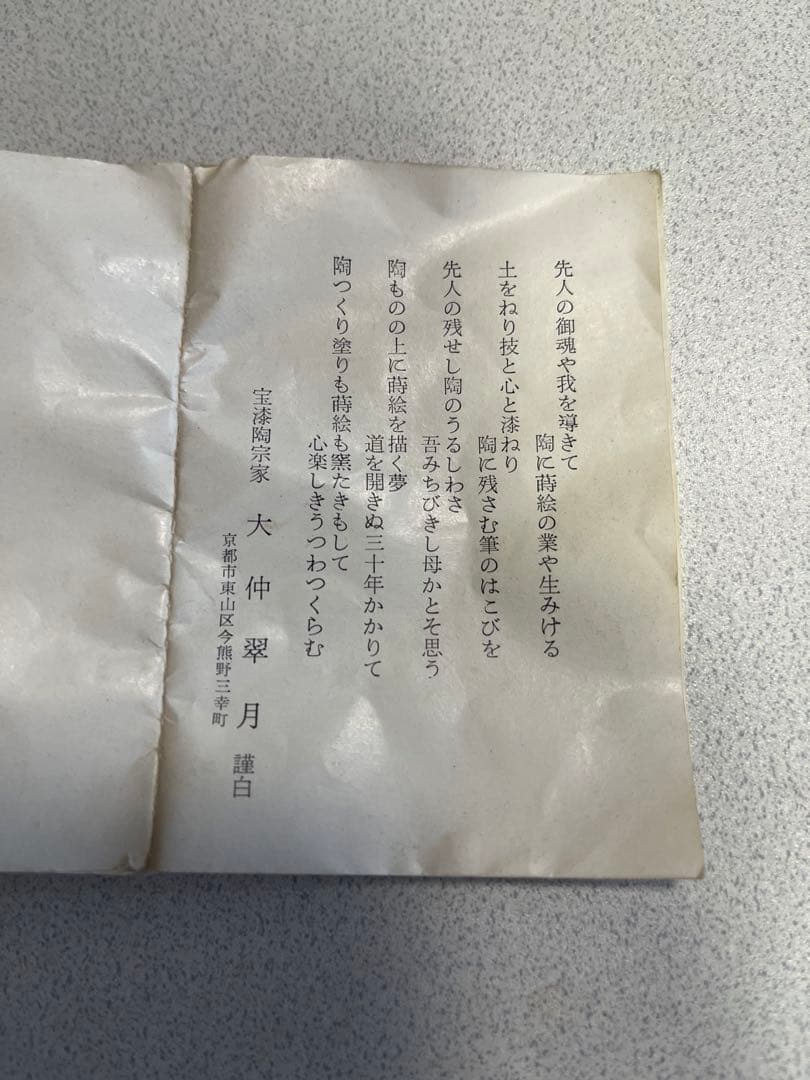 先人の御魂や我を導きて
陶に蒔絵の業や生みける
土をねり技と心と漆ねり
陶に残さむ筆のはこびを
先人の残せし陶のうるしわさ
吾みちびきし母かとそ思う
陶ものの上に蒔絵を描く夢
道を開きぬ三十年かかりて
陶つくり塗りも蒔絵も窯たきもして
心楽しきうつわつくらむ
宝漆陶宗家 大仲翠月 謹白
京都市東山区今熊野三幸町